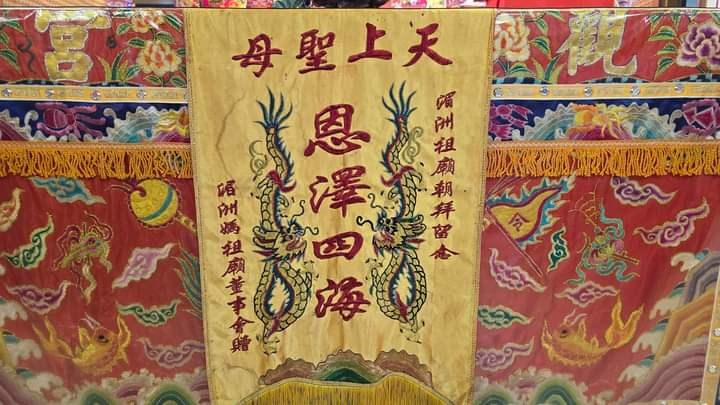 天上聖母
湄洲祖廟朝拜留念
恩澤四海
湄洲媽祖廟董事會贈
觀
宮
令